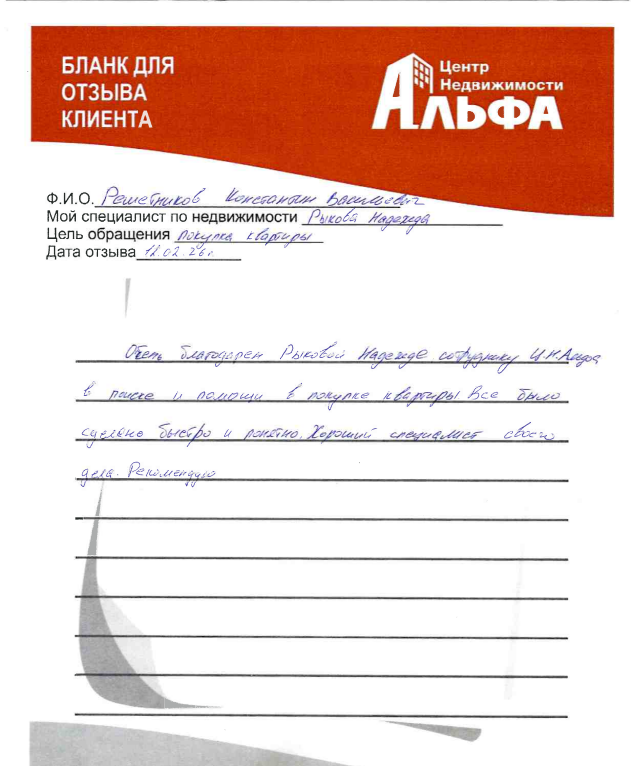 БЛАНК ДЛЯ
ОТЗЫВА
КЛИЕНТА
Центр
Недвижимости
АЛЬФА
Ф.И.О. Решетников Константин Васильевич
Мой специалист по недвижимости Рыкова Надежда
Цель обращения покупка квартиры
Дата отзыва 12.02.26г.
Очень благодарен Рыковой Надежде сотруднику Ц.Н.Альфа
в поиске и помощи в покупке квартиры. Все было
сделано быстро и понятно. Хороший специалист своего
дела. Рекомендую